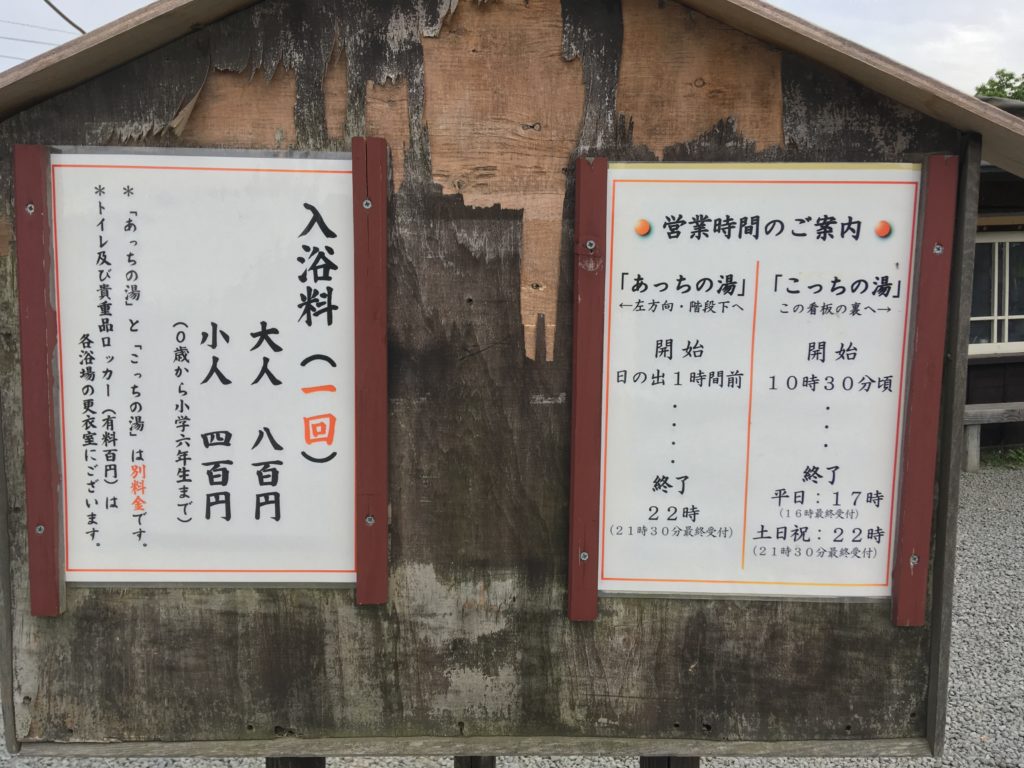 入浴料（一回）
大人　八百円
小人　四百円
（０歳から小学六年生まで）
＊「あっちの湯」と「こっちの湯」は別料金です。
＊トイレ及び貴重品ロッカー（有料百円）は
各浴場の更衣室にございます。
営業時間のご案内
「あっちの湯」
←左方向・階段下へ
開始
日の出１時間前
・
・
・
・
終了
２２時
（２１時３０分最終受付）
「こっちの湯」
この看板の裏へ→
開始
１０時３０分頃
・
・
・
終了
平日：１７時
（１６時最終受付）
土日祝：２２時
（２１時３０分最終受付）